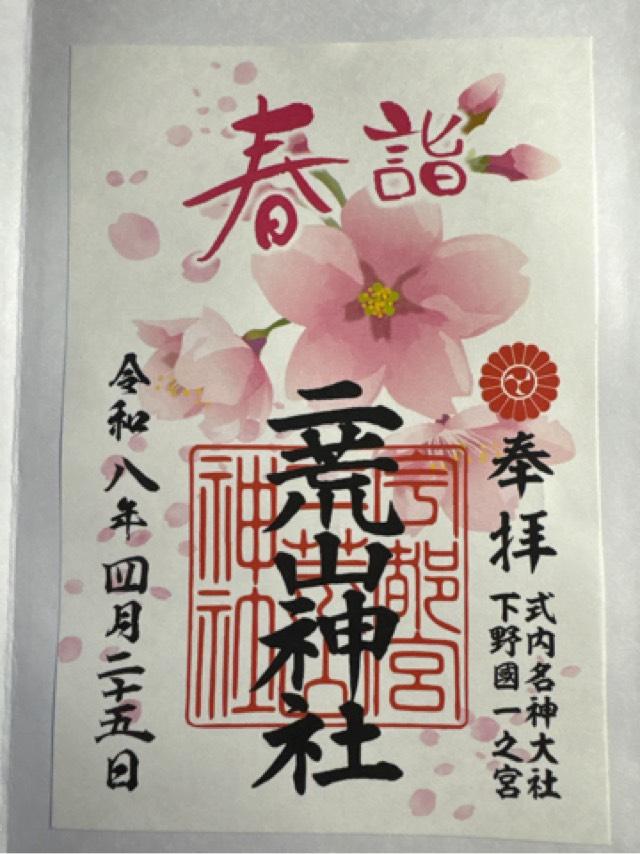 春詣
奉拝
式内名神大社
下野國一之宮
二荒山神社
宇都宮
二荒山
神社
令和八年四月二十五日